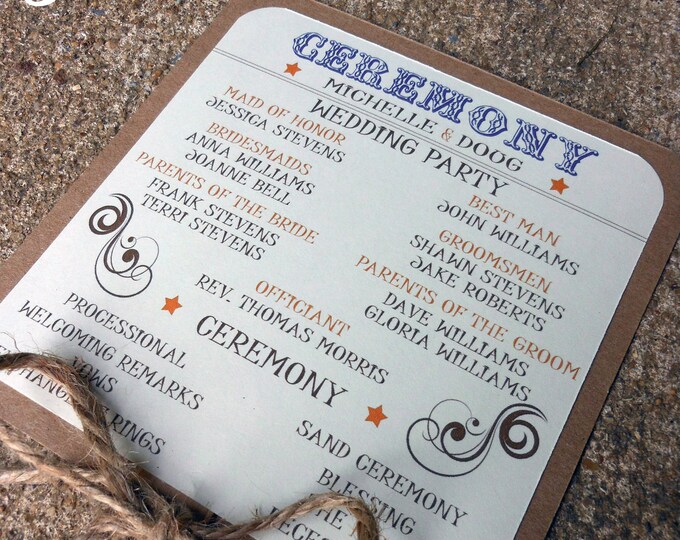 CEREMONY
MICHELLE & DOUG
WEDDING PARTY
MAID OF HONOR
JESSICA STEVENS
BRIDESMAIDS
ANNA WILLIAMS
JOANNE BELL
PARENTS OF THE BRIDE
FRANK STEVENS
TERRI STEVENS
BEST MAN
JOHN WILLIAMS
GROOMSMEN
SHAWN STEVENS
JAKE ROBERTS
PARENTS OF THE GROOM
DAVE WILLIAMS
GLORIA WILLIAMS
OFFICIANT
REV. THOMAS MORRIS
CEREMONY
PROCESSIONAL
WELCOMING REMARKS
VOWS
RINGS
SAND CEREMONY
BLESSING